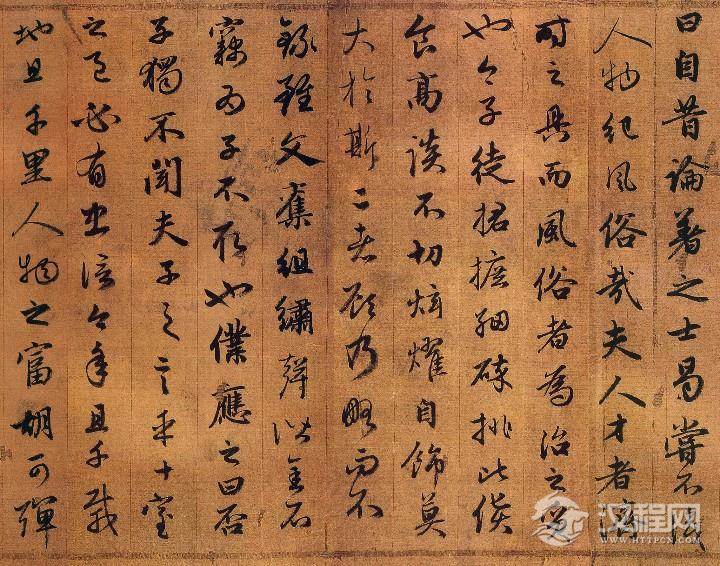 曰自昔論著之士曷嘗不以
人物紀風俗哉夫人才者濟
時之具而風俗者為治之
也今子徒捃摭細碎排比餱
食高談不切炫耀自飾莫
大於斯二者顧乃略而不
錄雖文奪組繡聲諧金石
竊為子不取也僕應之曰否
子獨不聞夫子之言乎十室
之邑必有忠信今年且千載
地且千里人物之富胡可殫
汉程网
WWW.HTTPCN.COM